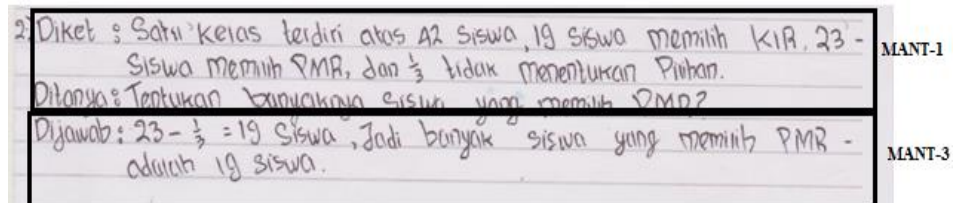 2. Diket : Satu kelas terdiri atas 42 siswa, 19 siswa memilih KIR, 23 -
siswa memilih PMR, dan 1/3 tidak menentukan Pilihan.
MANT-1
Ditanya : Tentukan banyaknya siswa yang memilih PMR?
Dijawab : 23 - 1/3 = 19 siswa, Jadi banyak siswa yang memilih PMR -
adalah 19 siswa.
MANT-3